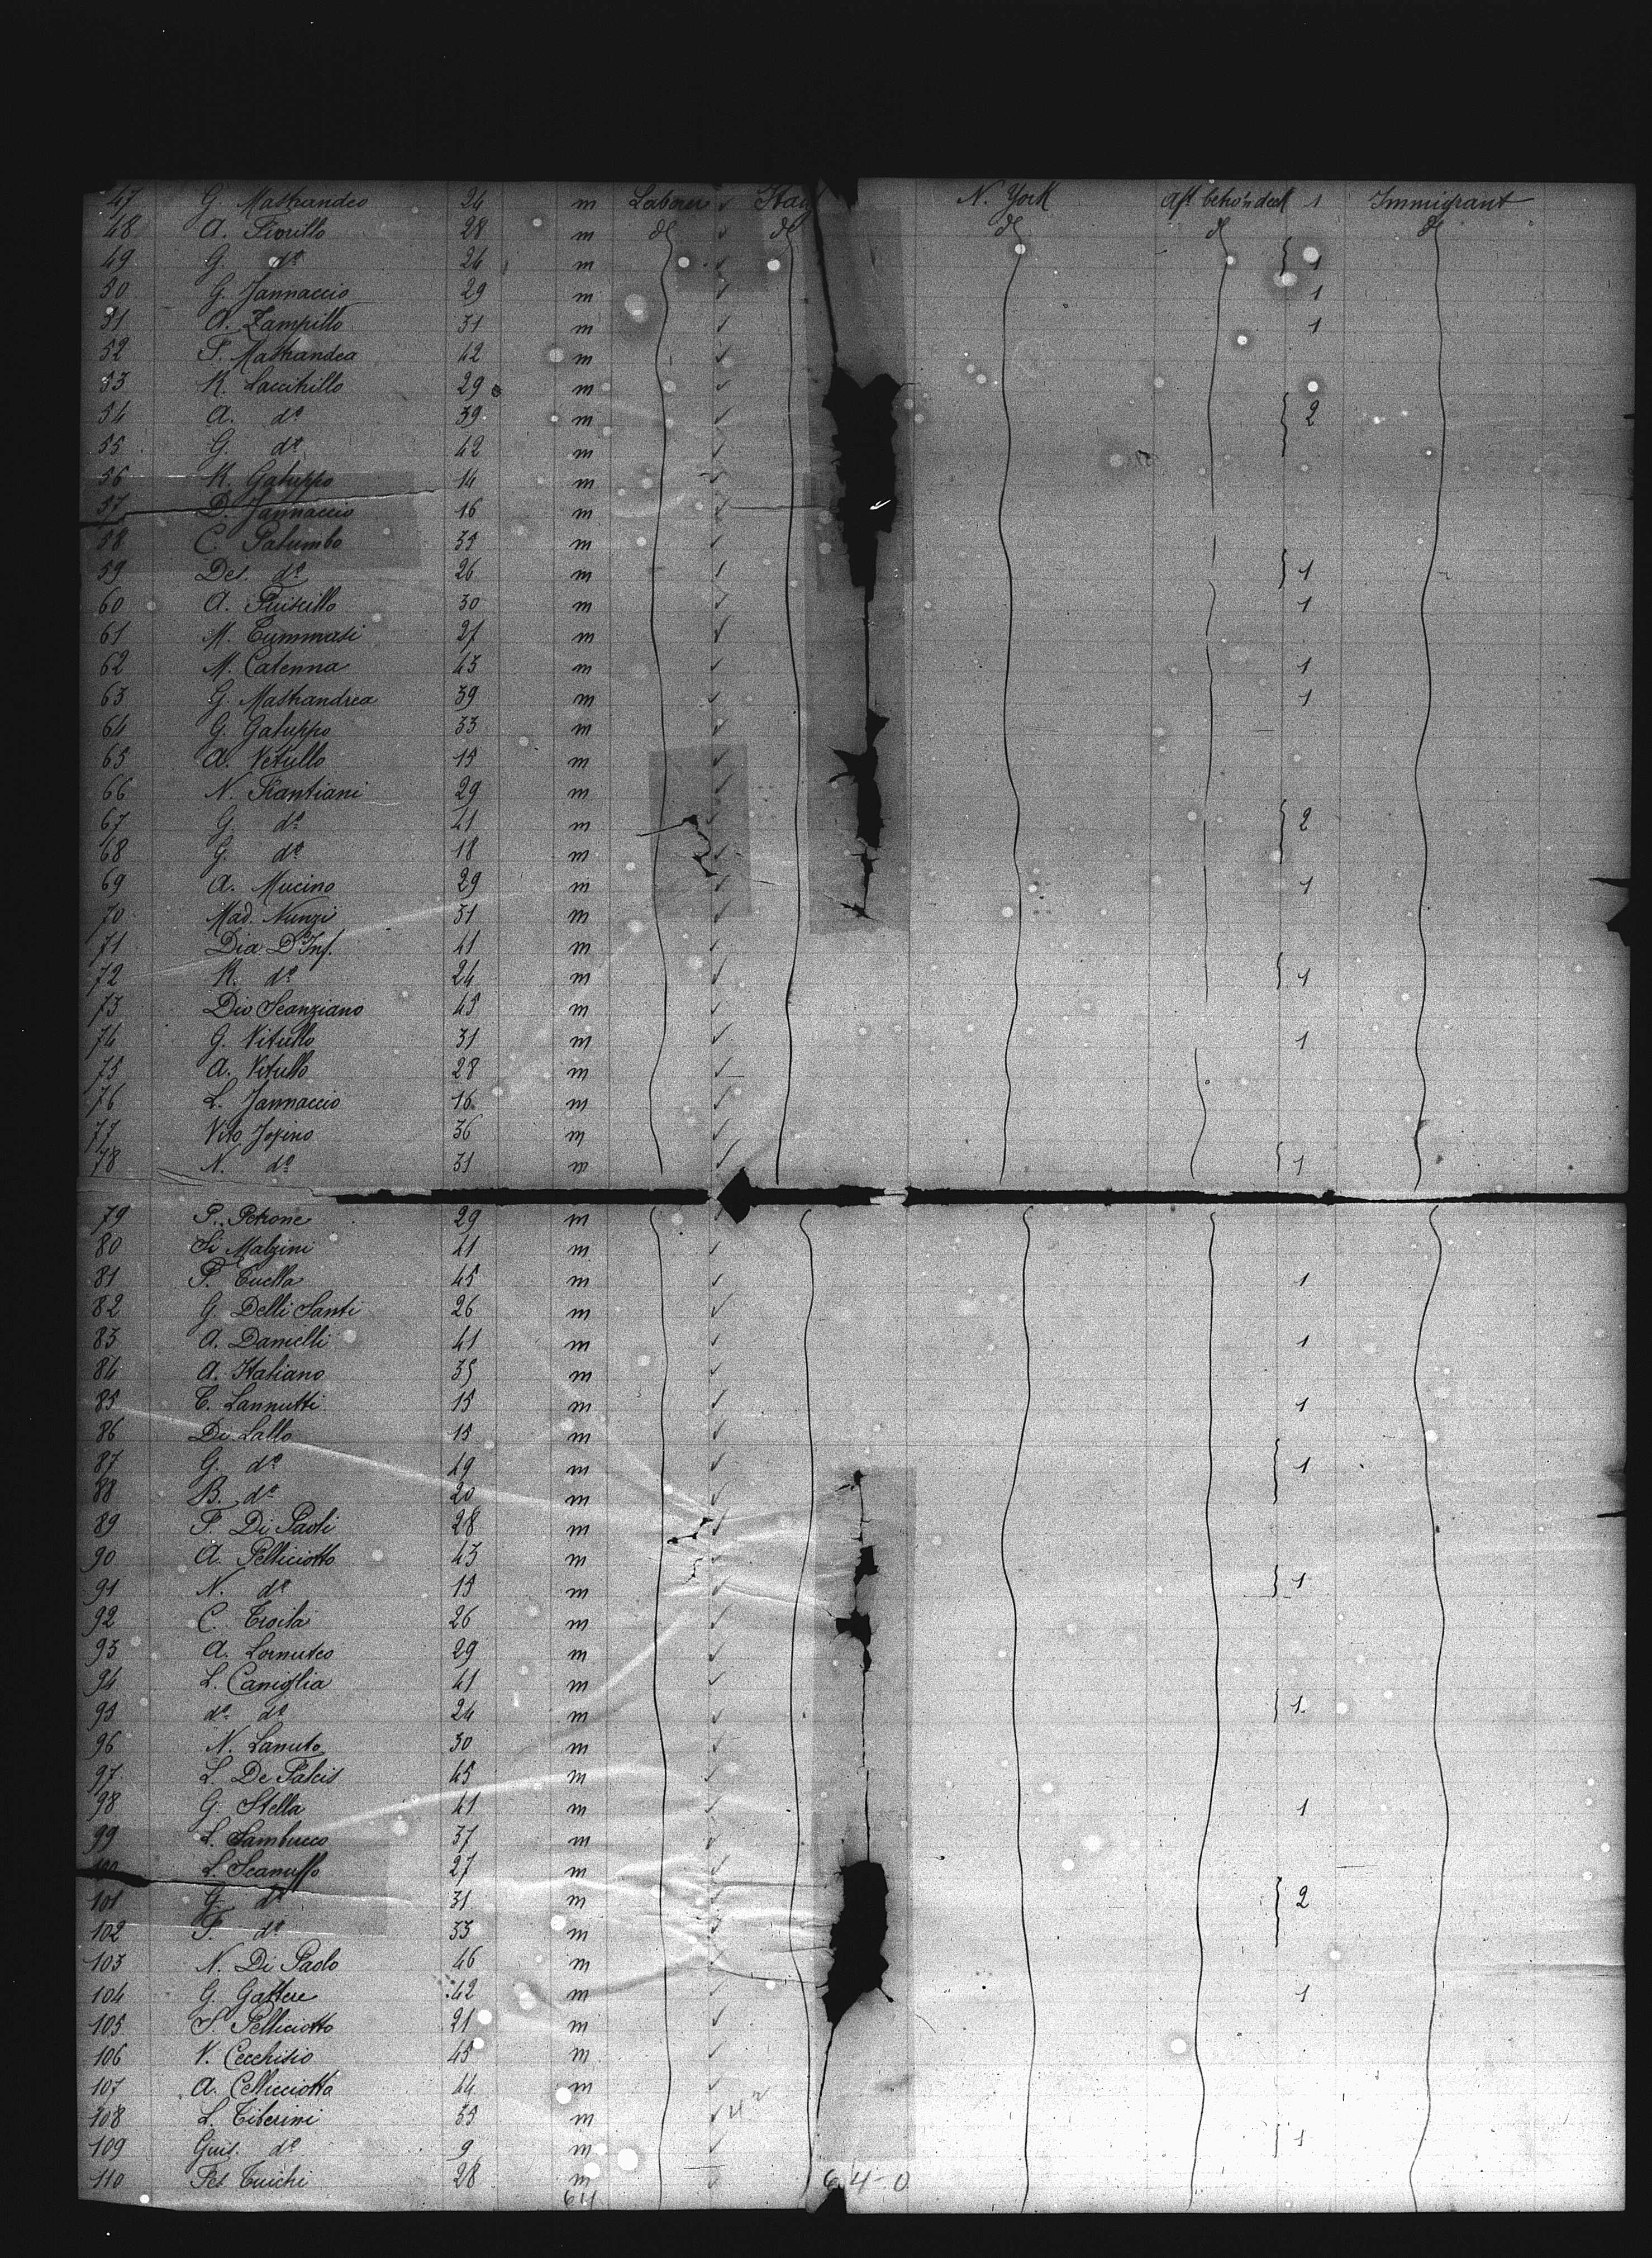 47 G. Mastrandeo 24 m Laborer ✓ Italy N. York Aft betw'n deck 1 Immigrant
48 A. Fiorillo 28 m do ✓ do do do do
49 G. do 24 m ✓ } 1
50 G. Jannaccio 29 m ✓ 1
51 A. Zampillo 31 m ✓ 1
52 S. Mastrandea 42 m ✓
53 R. Laccitillo 29 m ✓
54 A. do 39 m ✓ } 2
55 G. do 42 m ✓
56 R. Galuppo 14 m ✓
57 D. Jannaccio 16 m ✓
58 C. Palumbo 35 m ✓
59 Des. do 26 m ✓ } 1
60 A. 30 m ✓ 1
61 M. Cummasi 21 m ✓
62 M. Catenna 43 m ✓ 1
63 G. Mastrandrea 39 m ✓ 1
64 G. Galuppo 33 m ✓
65 A. Vetullo 15 m ✓
66 N. 29 m ✓
67 G. do 41 m ✓ } 2
68 G. do 18 m ✓
69 A. Mucino 29 m ✓ 1
70 Mad. Nunzi 31 m ✓
71 Dia D'Inf. 41 m ✓
72 R. do 24 m ✓ } 1
73 Dio Scanziano 45 m ✓
74 G. Vitullo 31 m ✓ 1
75 A. Vitullo 28 m ✓
76 L. Jannaccio 16 m ✓
77 Vito 36 m ✓
78 N. do 31 m ✓ } 1
79 P. Petrone 29 m
80 Si Malzini 41 m ✓
81 P. Cuella 45 m ✓ 1
82 G. Delli Santi 26 m ✓
83 A. Danielli 41 m ✓ 1
84 A. Italiano 35 m ✓
85 C. Lannutti 15 m ✓ 1
86 Di Lallo 15 m ✓
87 G. do 19 m ✓ } 1
88 B. do 20 m ✓
89 P. Di Paoli 28 m ✓
90 A. Pelliciotto 43 m ✓
91 N. do 15 m ✓ } 1
92 C. Troila 26 m ✓
93 A. Lornuteo 29 m ✓
94 L. Caniglia 41 m ✓
95 do do 24 m ✓ } 1
96 N. Lanuto 30 m ✓
97 L. De Falcis 45 m ✓
98 G. Stella 41 m ✓ 1
99 L. Sambucco 37 m ✓
100 L. Scanuffo 27 m ✓
101 G. do 31 m ✓ } 2
102 F. do 33 m ✓
103 N. Di Paolo 46 m ✓
104 G. Gattere 42 m ✓ 1
105 S. Pelliciotto 21 m ✓
106 V. Cecchisio 45 m ✓
107 A. Cellicciotta 44 m ✓
108 L. Tiberini 35 m ✓
109 Guis. do 9 m ✓ } 1
110 Fel. Tuichi 28 m ✓ 64-0
64